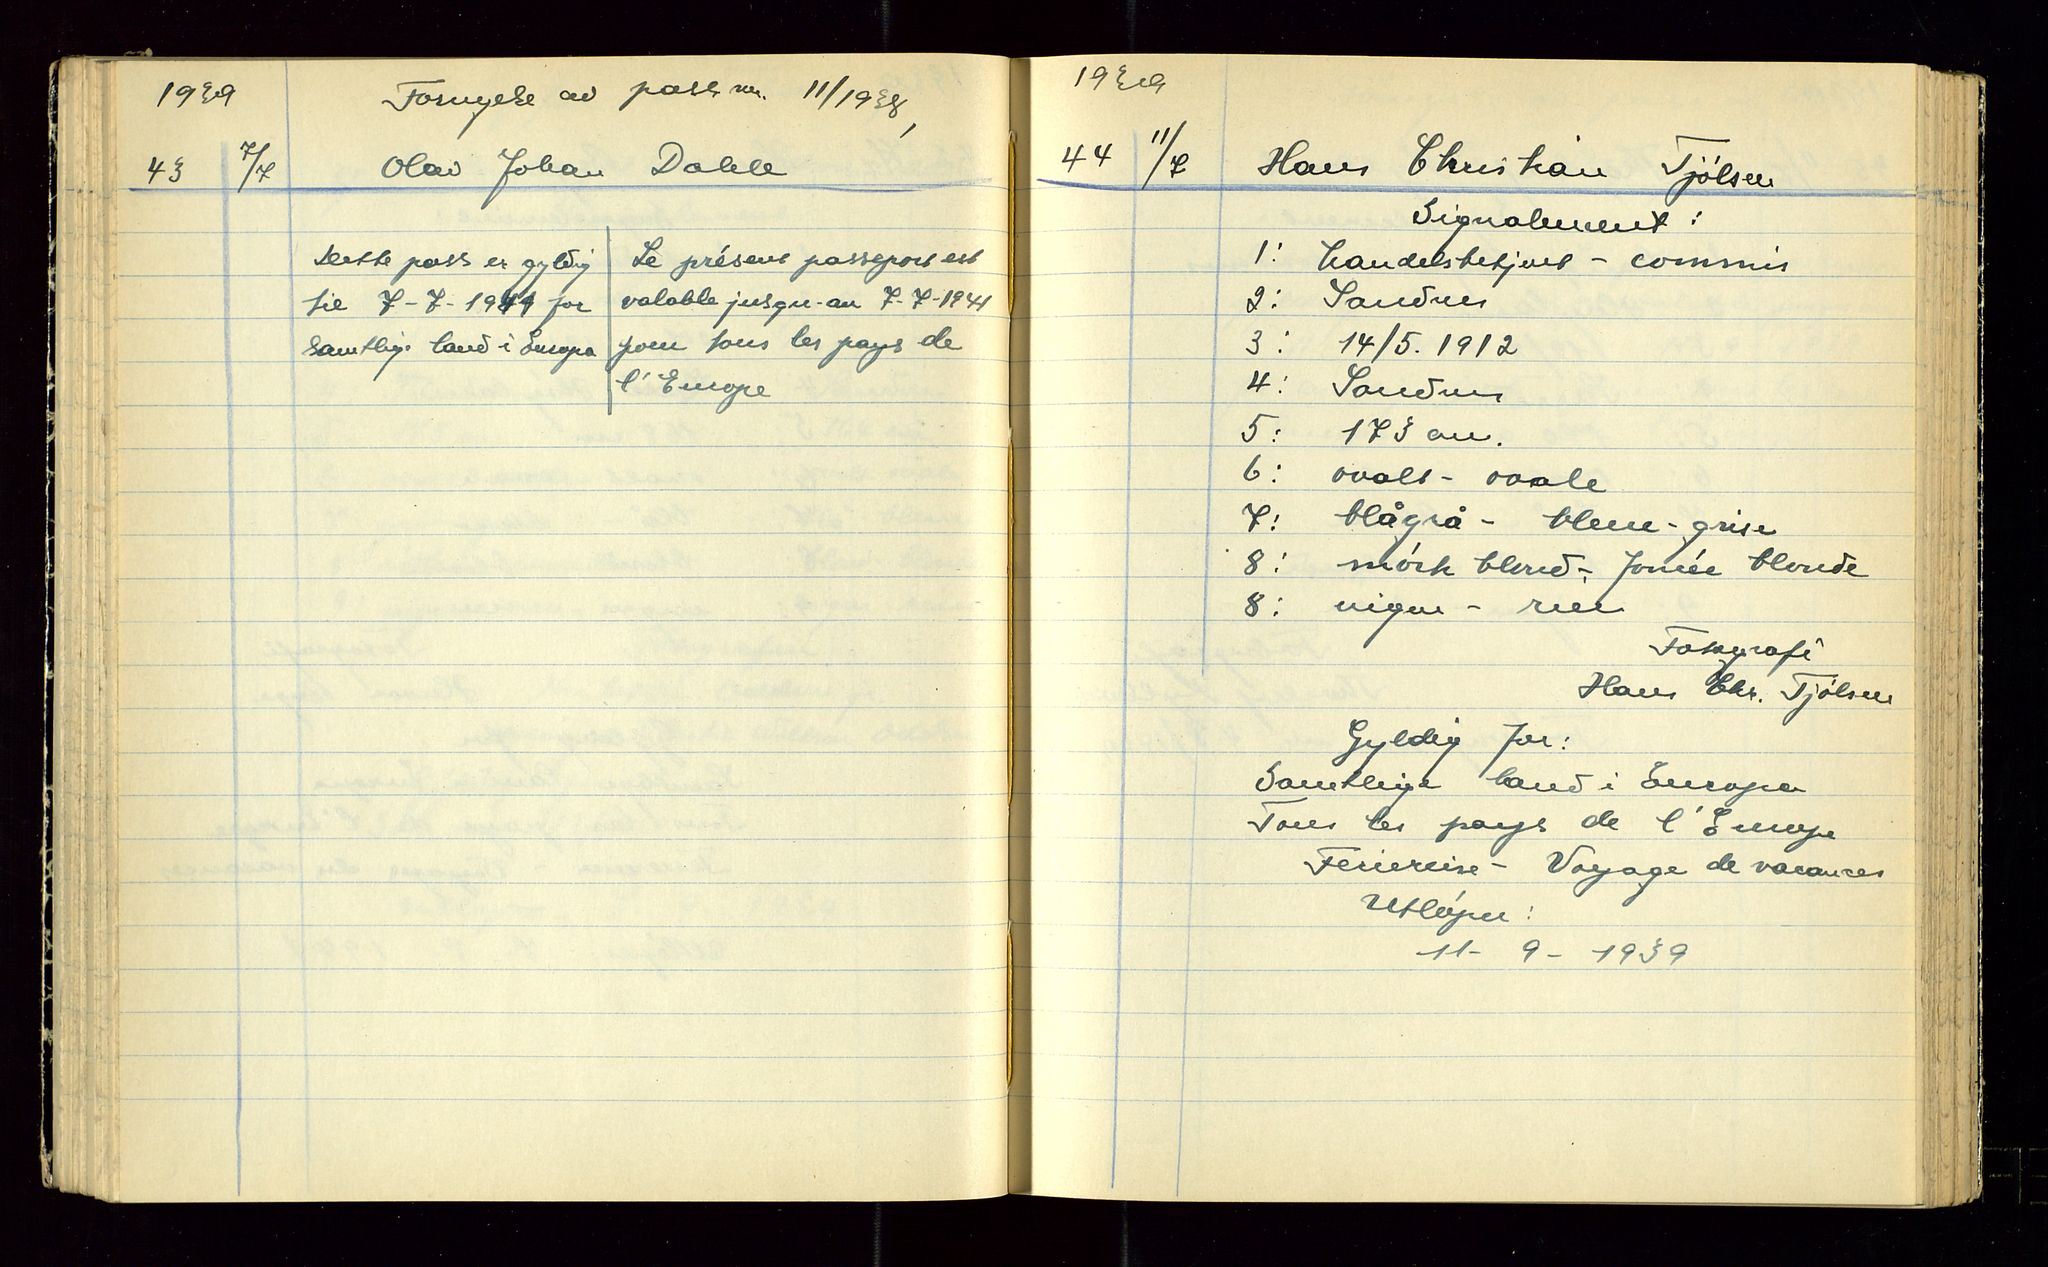 1939
Fornyelse av pass nr. 11/1938,
43 7/7 Olav Johan Dahle
Dette pass er gyldig
til 7-7-1941 for
samtlige land i Europa
Le présent passeport est
valable jusqu-au 7-7-1941
pour tous les pays de
l'Europe
1939
44 11/7 Hans Christian Tjölsen
Signalement:
1: handelsbetjent - commis
2: Sandnes
3: 14/5. 1912
4: Sandnes
5: 173 cm.
6: ovalt - ovale
7: blågrå - bleue-grise
8: mörk blond - foncée blonde
8: ingen - rien
Fotografi
Hans Chr. Tjölsen
Gyldig for:
Samtlige land i Europa
Tous les pays de l'Europe
Feriereise - Voyage de vacances
Utlöper:
11-9-1939